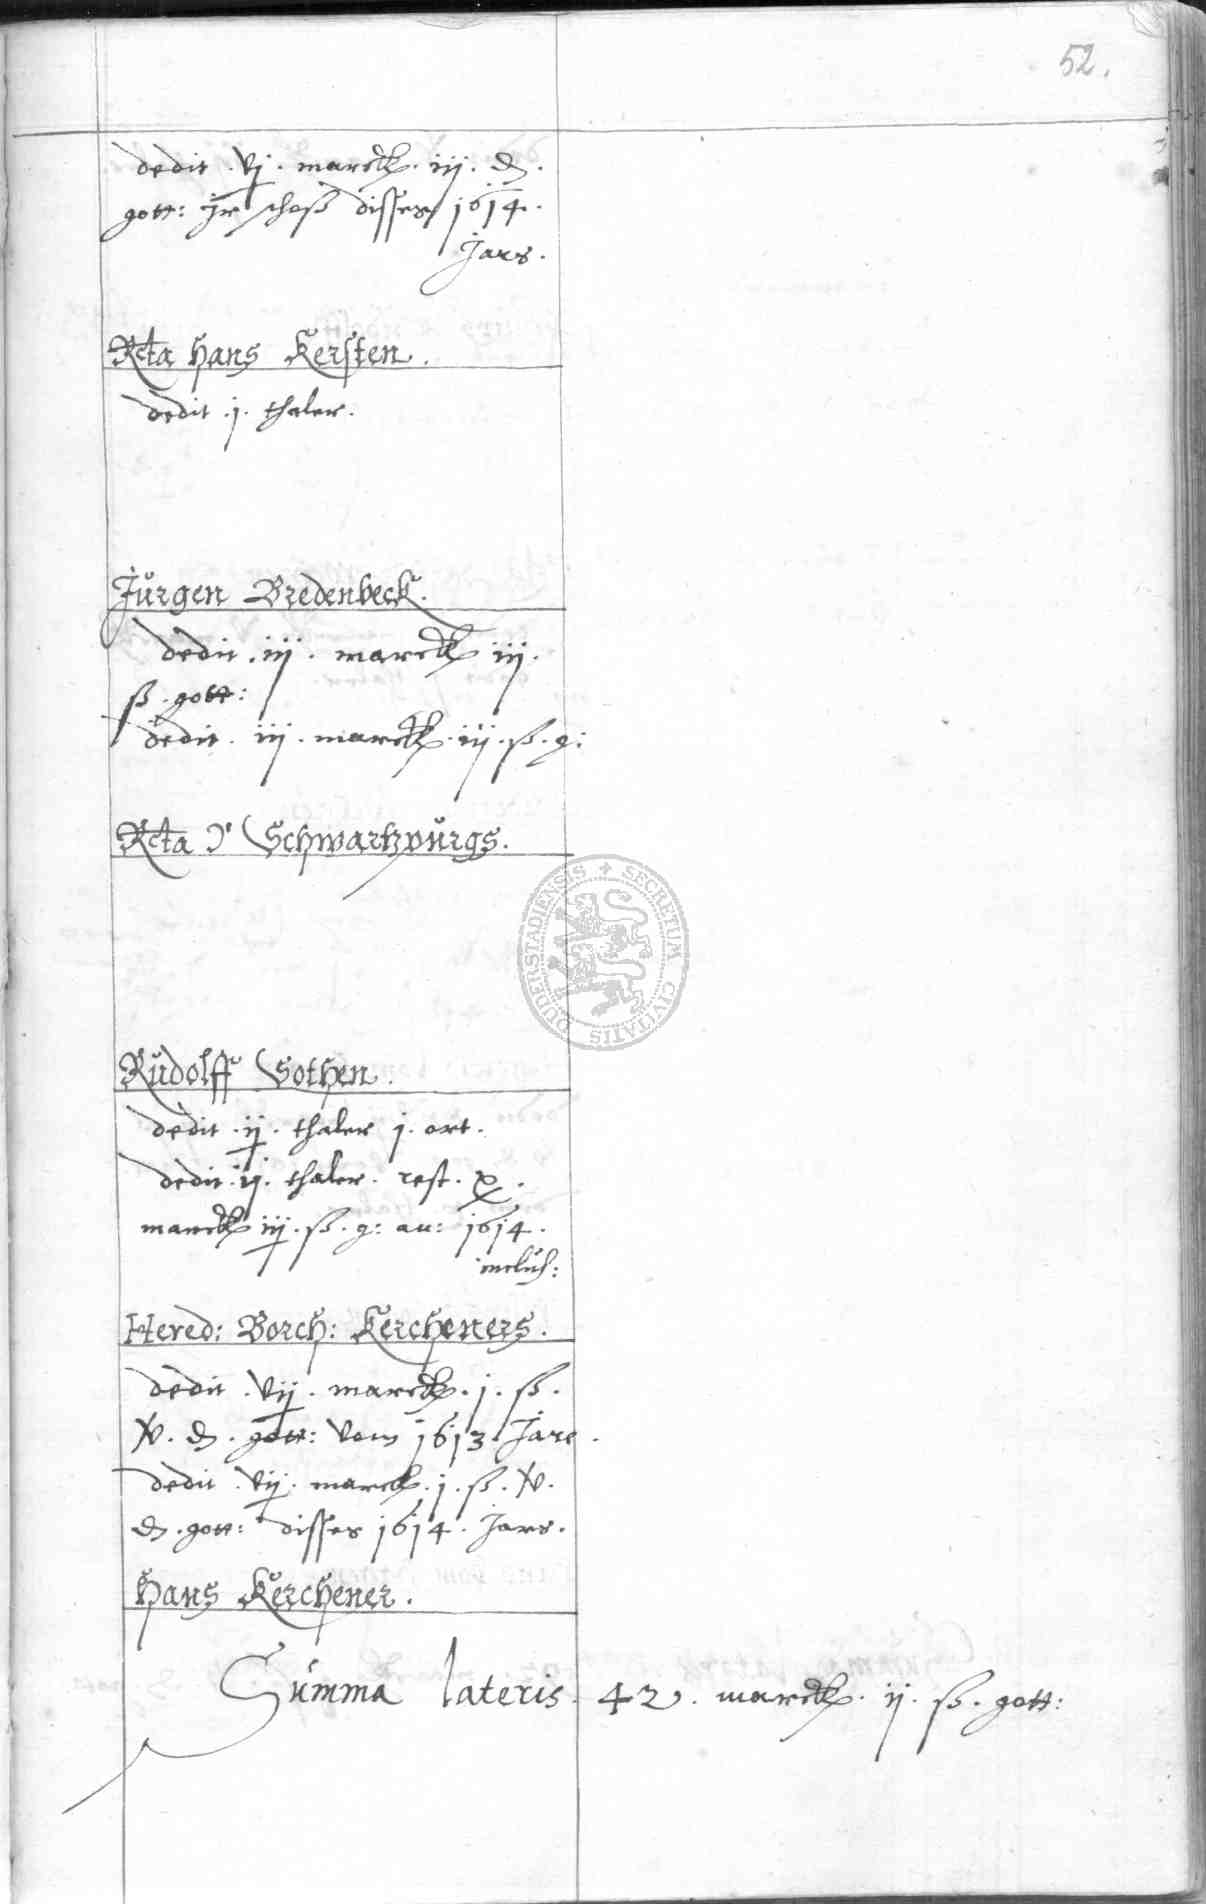 52.
dedit . vj . marck . iij . d .
gott: jr schoß disses 1614 .
Jars .
Rcta Hans Kersten .
dedit . j . thaler .
Jürgen Bredenbeck .
dedit . iij . marck iij .
ß . gott:
dedit . iij . marck . iij . ß . g:
Rcta Schwartzpurgs .
Rudolff Sothen .
dedit . ij . thaler j . ort .
dedit . ij . thaler . rest . x .
marck iij . ß . g: an: 1614 .
inclus:
Hered: Borch: Kercheners .
dedit . vij . marck . j . ß .
iv . d . gott: vom 1613 Jare .
dedit . vij . marck . j . ß . iv .
d . gott: disses 1614 . Jars .
Hans Kerchener .
Summa lateris . 42 . marck . ij . ß . gott:
SECRETUM CIVITATIS DUDERSTADIENSIS